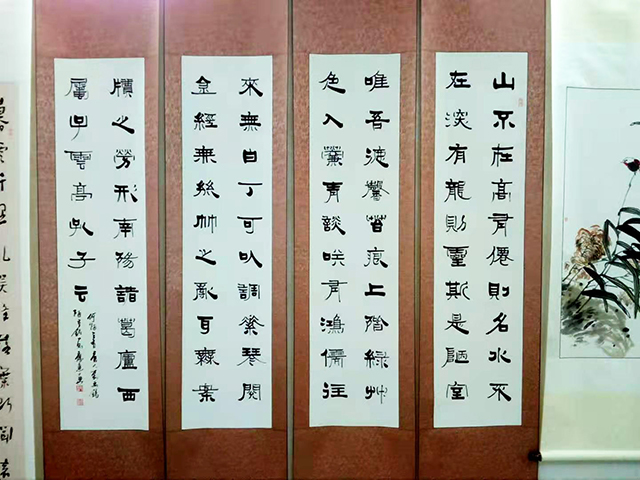 山不在高有僊則名水不
在深有龍則靈斯是陋室
唯吾德馨苔痕上階綠艸
色入簾青談咲有鴻儒往
來無白丁可以調素琴閱
金經無絲竹之亂耳無案
牘之勞形南陽諸葛廬西
蜀子雲亭孔子云
何陋之有唐人劉禹錫
陋室銘